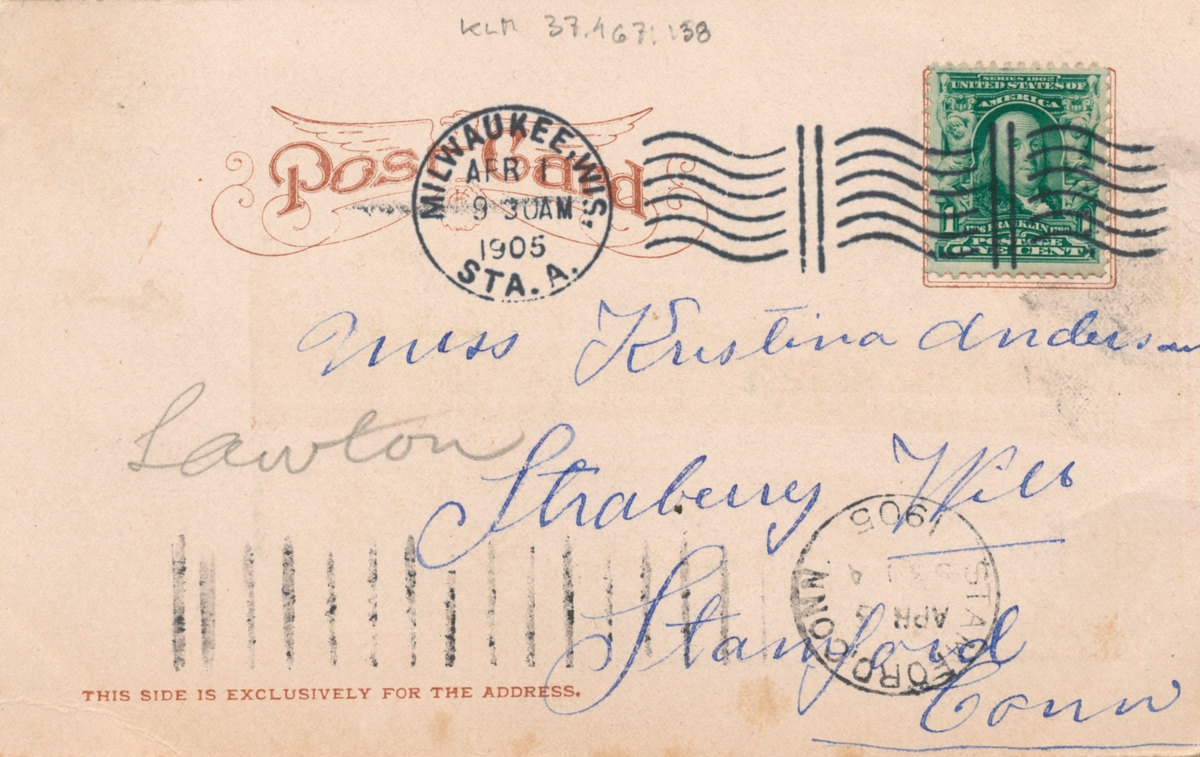 KLM 37.467:138
Post Card
MILWAUKEE, WIS.
APR 1
9 30 AM
1905
STA. A.
SERIES 1902
UNITED STATES OF
AMERICA
1 FRANKLIN 1
POSTAGE
ONE CENT
Miss Kristina Anderson
Lawton
Straberry Hill
Stamford
Conn
STAMFORD, CONN.
APR 3
4
1905
THIS SIDE IS EXCLUSIVELY FOR THE ADDRESS.